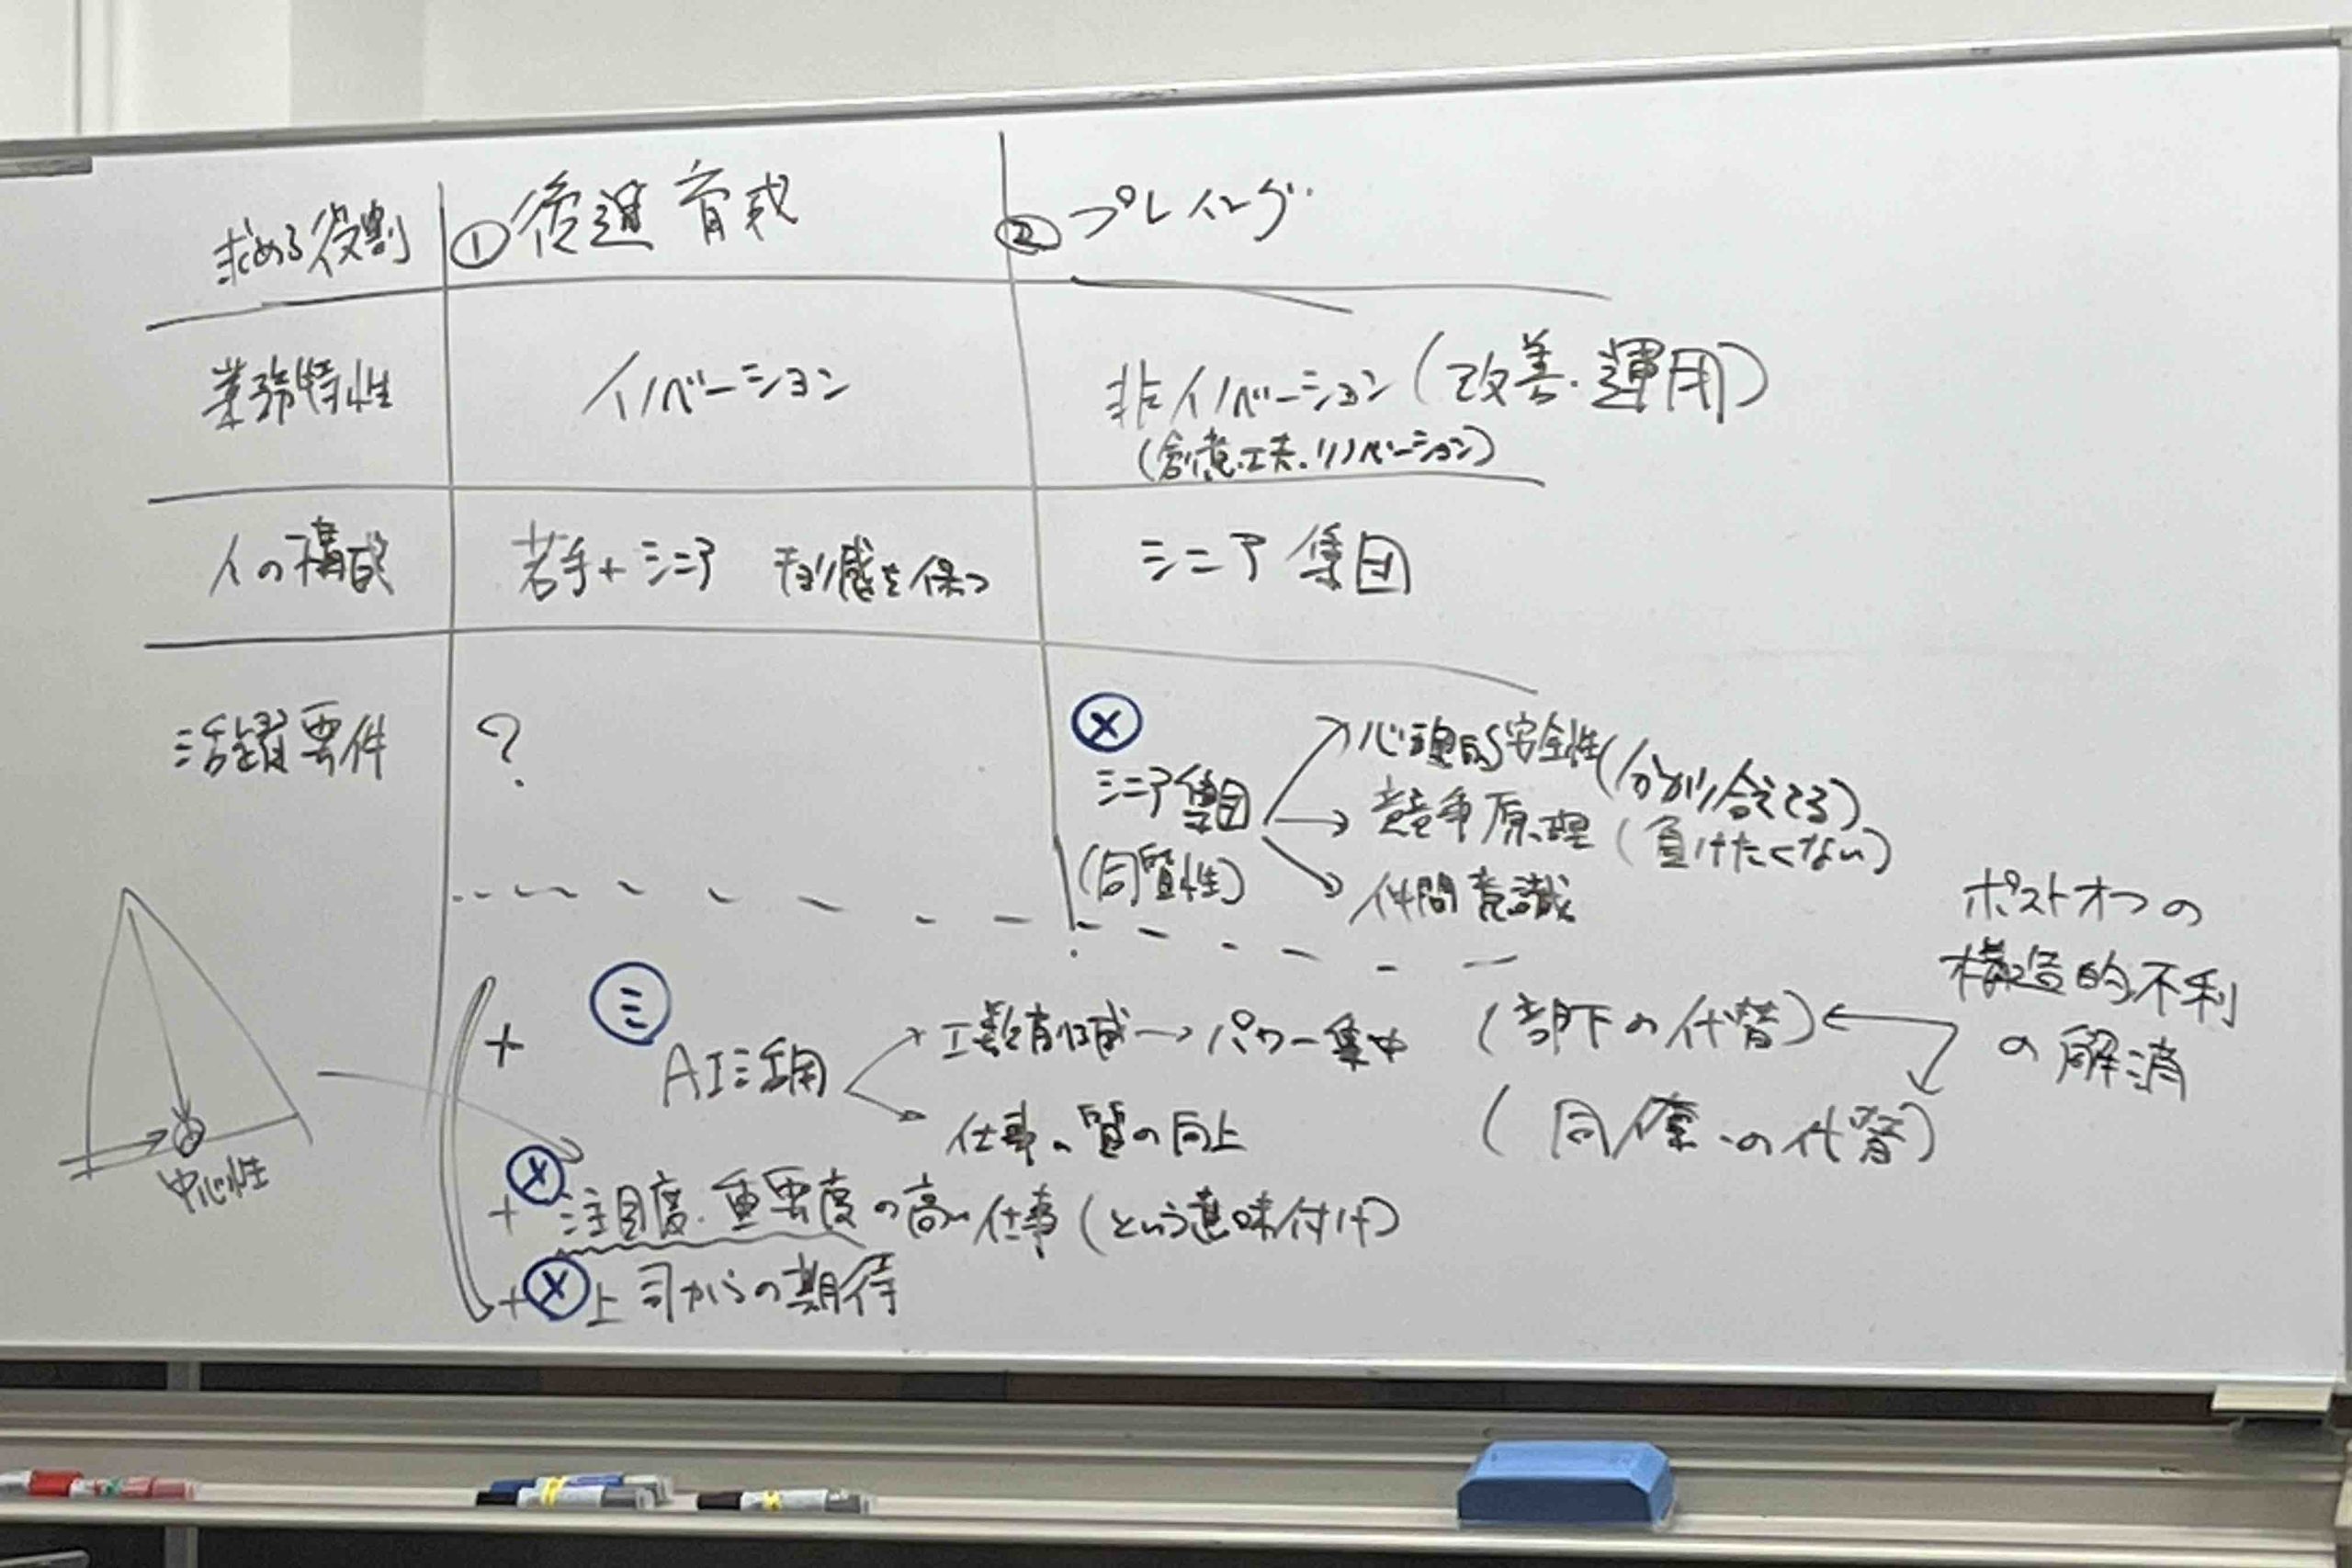 求める役割 ①後進育成 ②プレイング
業務特性 イノベーション 非イノベーション(改善・運用)
(創意・工夫・リノベーション)
人の構成 若手+シニア 感を保つ シニア集団
活躍要件 ?
メ
シニア集団
(同質性)
心理的安全性(分かり合えてる)
競争原理(負けたくない)
仲間意識
ポストオフの
構造的不利
の解消
+ ミ
AI活用
工数削減→パワー集中 (部下の代替)
仕事の質の向上 (同僚の代替)
+ メ 注目度・重要度の高い仕事(という意味付け)
+ メ 上司からの期待
中心性